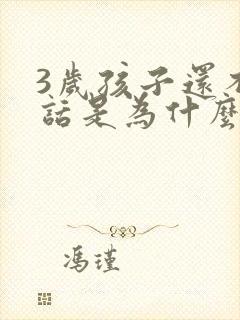 3歲孩子還不
話是為什麼
馮瑾